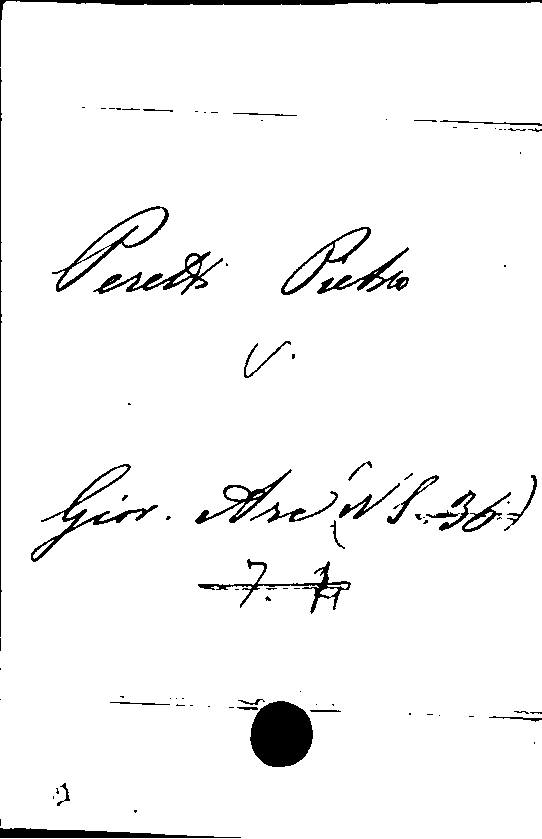 Peretti Pietro
V.
Gior. Arc (N S. 36)
7. 1